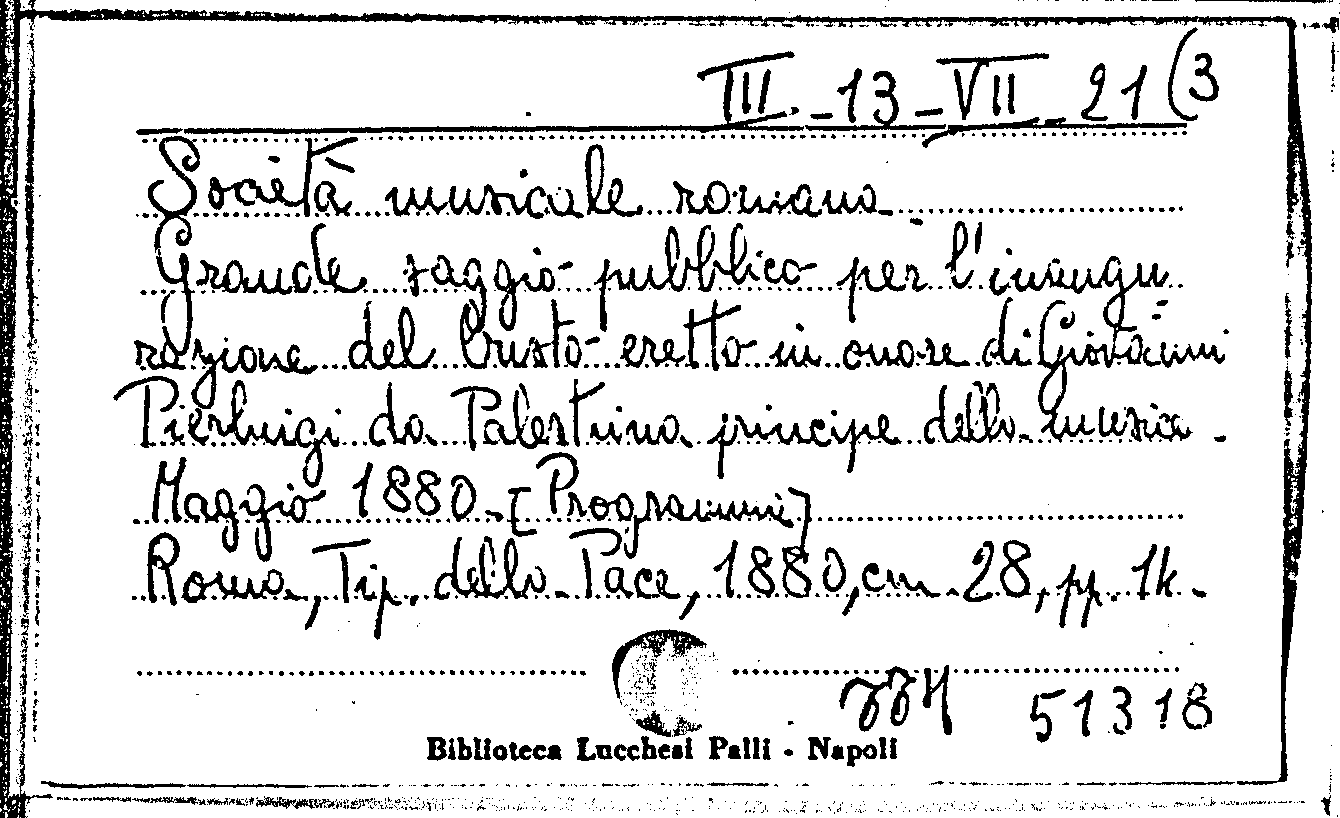 III. - 13 - VII - 21 (3
Società musicale romana.
Grande saggio pubblico per l'inaugu
razione del busto eretto in onore di Giovanni
Pierluigi da Palestrina principe della musica.
Maggio 1880. [Programmi]
Roma, Tip. della Pace, 1880, cm. 28, pp. 14.
51318
Biblioteca Lucchesi Palli - Napoli